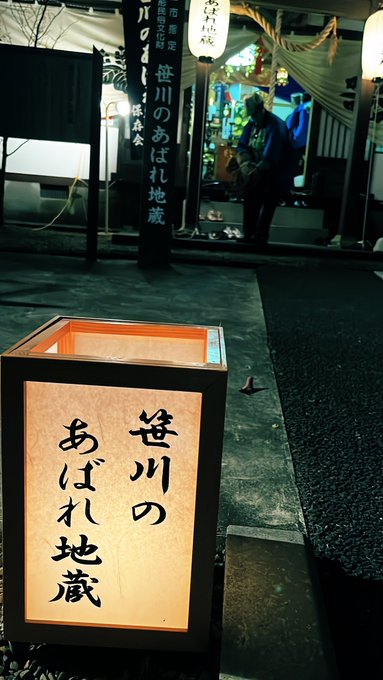 笹川の
あばれ地蔵
市指定
形民俗文化財
笹川のあばれ地蔵
川のあば
保存会
あばれ